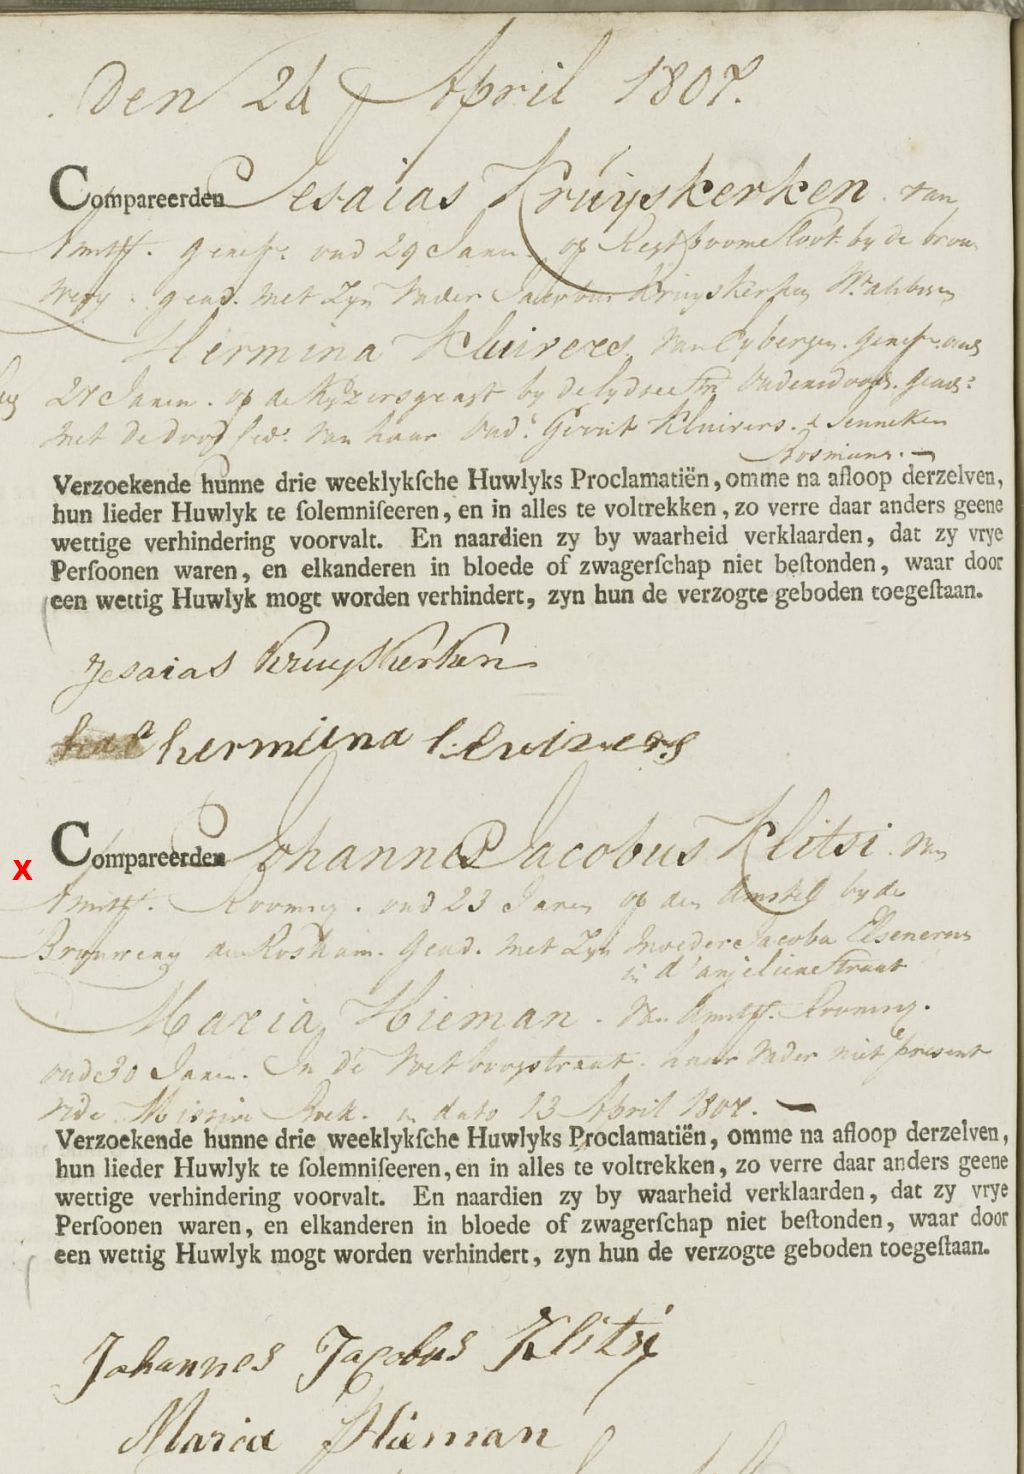 den 24 April 1807.
Compareerden Jesaias Kruyskerken. van
Amstf. geref: oud 29 Jaren op Regtboomsloot by de brou
wery. gead. met zyn Vader Jacobus Kruyskerken
Hermina Kluivers. van Eybergen. geref. oud
27 Jaren. op de Kyzersgragt by de Lydse Str. Ouders dood. gead:
met de dood ced: van haar Oud: Gerrit Kluivers. & Jenneken
Rosmans.
Verzoekende hunne drie weeklykſche Huwlyks Proclamatiën, omme na afloop derzelven,
hun lieder Huwlyk te ſolemniſeeren, en in alles te voltrekken, zo verre daar anders geene
wettige verhindering voorvalt. En naardien zy by waarheid verklaarden, dat zy vrye
Perſoonen waren, en elkanderen in bloede of zwagerſchap niet beſtonden, waar door
een wettig Huwlyk mogt worden verhindert, zyn hun de verzogte geboden toegeſtaan.
Jesaias Kruyskerken
hermiena kluivers
X
Compareerden Johannes Jacobus Klitsi. van
Amstf. Rooms. oud 23 Jaren op den Amstel by de
Brouwery de Roskam. gead. met zyn moeder Jacoba Elseneren
in d'anjelierstraat
Maria Hieman. van Amstf. Rooms.
oud 30 Jaren. In de Wetboogstraat. haar Vader niet present
vide Missive Boek. in dato 13 April 1807.
Verzoekende hunne drie weeklykſche Huwlyks Proclamatiën, omme na afloop derzelven,
hun lieder Huwlyk te ſolemniſeeren, en in alles te voltrekken, zo verre daar anders geene
wettige verhindering voorvalt. En naardien zy by waarheid verklaarden, dat zy vrye
Perſoonen waren, en elkanderen in bloede of zwagerſchap niet beſtonden, waar door
een wettig Huwlyk mogt worden verhindert, zyn hun de verzogte geboden toegeſtaan.
Johannes Jacobus Klitsi
Maria Hieman